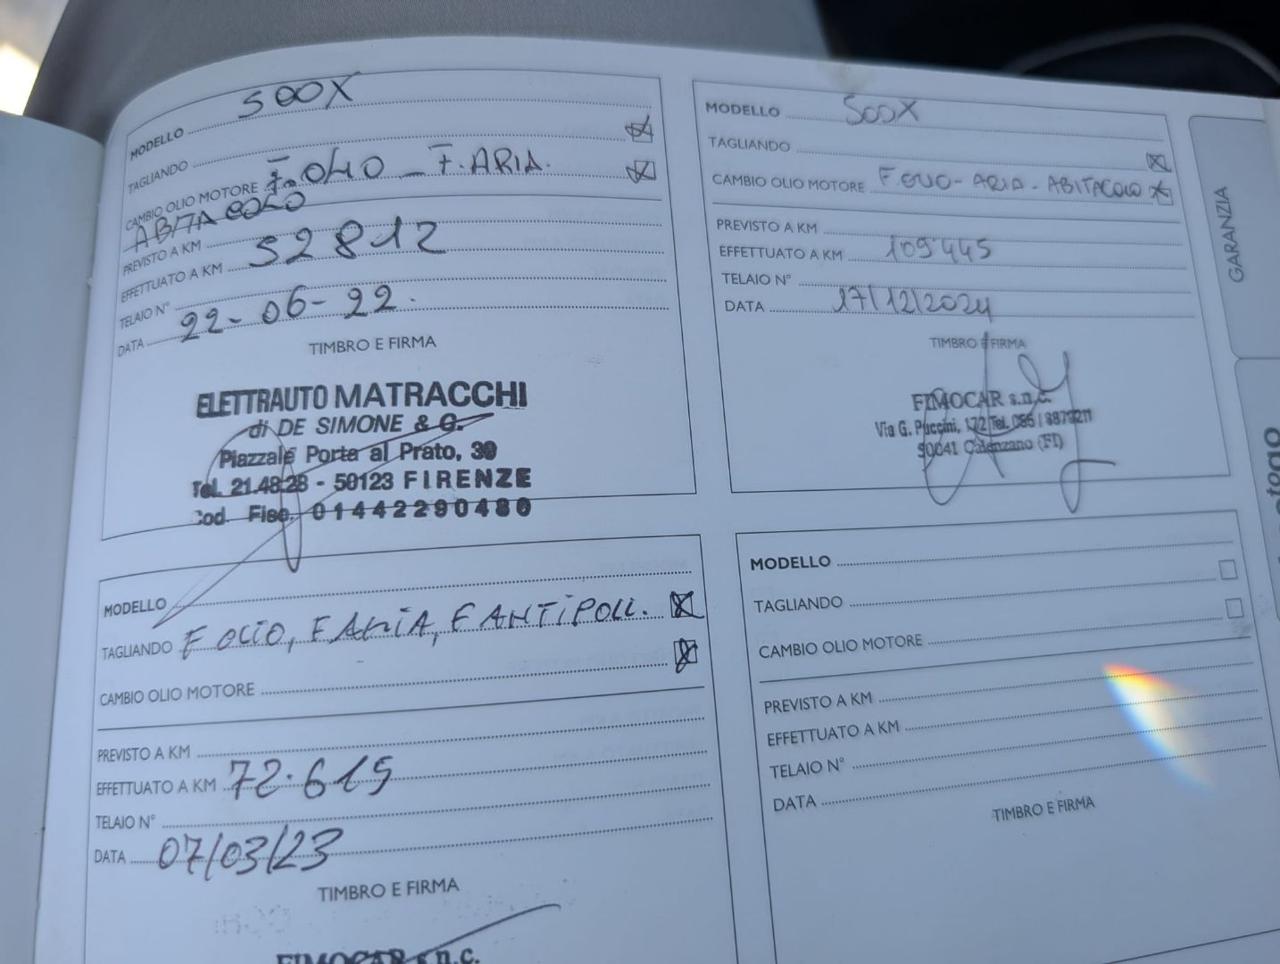 MODELLO 500X
TAGLIANDO
CAMBIO OLIO MOTORE F. OLIO - F. ARIA.
ABITACOLO
PREVISTO A KM
EFFETTUATO A KM 52812
TELAIO N°
DATA 22-06-22.
TIMBRO E FIRMA
ELETTRAUTO MATRACCHI
di DE SIMONE & C.
Piazzale Porta al Prato, 39
Tel. 21.48.28 - 50123 FIRENZE
Cod. Fisc. 01442290480
MODELLO 500X
TAGLIANDO
CAMBIO OLIO MOTORE F. OLIO - ARIA - ABITACOLO
PREVISTO A KM
EFFETTUATO A KM 109445
TELAIO N°
DATA 17/12/2024
TIMBRO E FIRMA
FIMOCAR s.n.c.
Via G. Puccini, 172 Tel. 055 /
50041 Calenzano (FI)
MODELLO
TAGLIANDO F OLIO, F ARIA, F ANTIPOLL.
CAMBIO OLIO MOTORE
PREVISTO A KM
EFFETTUATO A KM 72.615
TELAIO N°
DATA 07/03/23
TIMBRO E FIRMA
FIMOCAR s.n.c.
MODELLO
TAGLIANDO
CAMBIO OLIO MOTORE
PREVISTO A KM
EFFETTUATO A KM
TELAIO N°
DATA
TIMBRO E FIRMA
GARANZIA